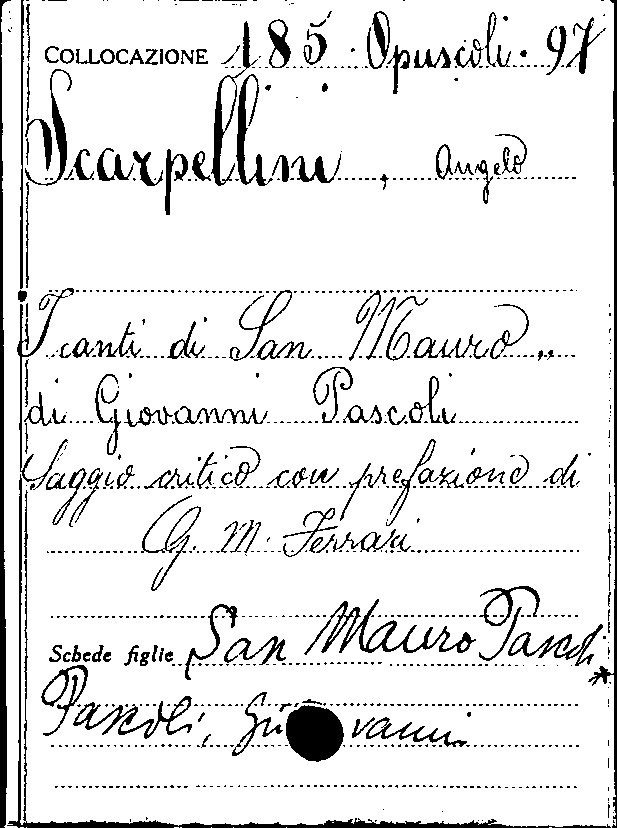 COLLOCAZIONE 185. Opuscoli. 97
Scarpellini, Angelo
I canti di San Mauro„
di Giovanni Pascoli
Saggio critico con prefazione di
G. M. Ferrari
Schede figlie San Mauro Pascoli *
Pascoli, Giovanni